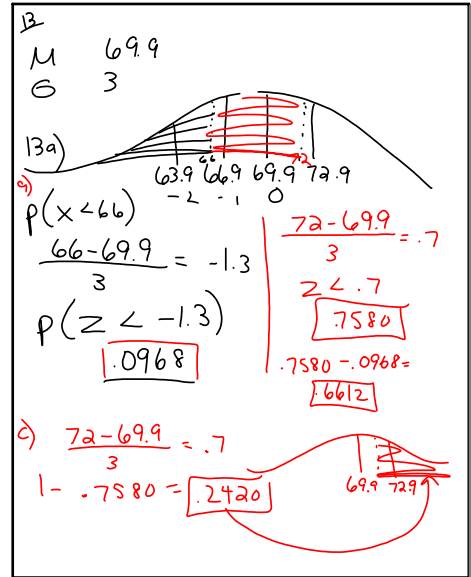 13
M 69.9
σ 3
13a)
66 72
63.9 66.9 69.9 72.9
-2 -1 0
a)
P(x<66)
66-69.9
3
= -1.3
P(z < -1.3)
.0968
72-69.9
3
= .7
z < .7
.7580
.7580 - .0968=
.6612
c) 72-69.9
3
= .7
1- .7580 = .2420
69.9 72.9